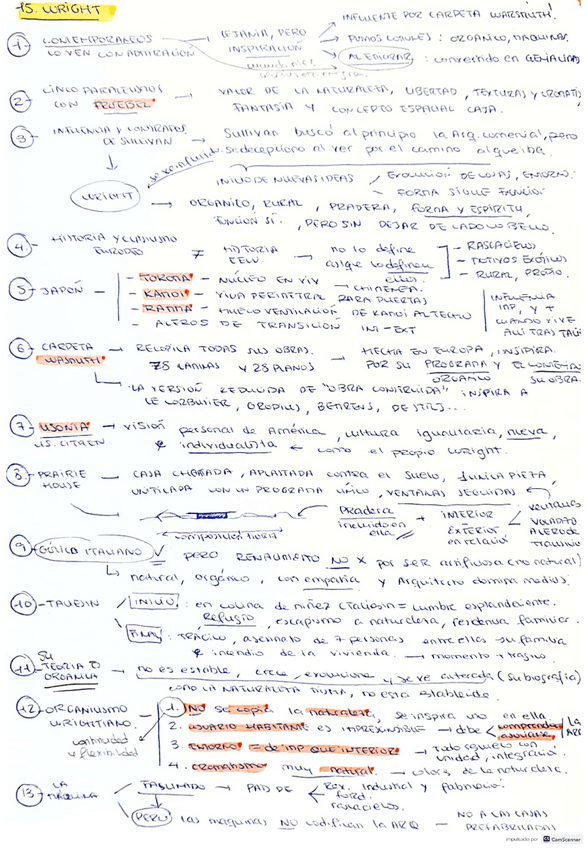 15. WRIGHT
INFLUENTE POR CARPETA WASMUTH!
1 - CONTEMPORÁNEOS → LEJANÍA, PERO PUNTOS COMUNES: ORGÁNICO, MAQUINAS.
LO VEN CON ADMIRACIÓN INSPIRACIÓN AL EMIGRAR: convertido en GENIALIDAD
2 - CINCO PARALELISMOS → VALOR DE LA NATURALEZA, LIBERTAD, TEXTURAS y
CON FROEBEL FANTASÍA Y CONCEPTO ESPACIAL CAJA.
3 - INFLUENCIA Y → Sullivan buscó al principio la Arq. comercial, pero
DE SULLIVAN se decepciono al ver por el camino al que iba.
INICIO DE NUEVAS IDEAS EVOLUCION DE ENTORNO.
FORMA SIGUE FUNCION
WRIGHT → ORGANICO, RURAL, PRADERA, FORMA Y ESPIRITU,
FUNCIÓN SÍ, PERO SIN DEJAR DE LADO LO BELLO.
4 - HISTORIA Y CLASICISMO ≠ HISTORIA → no lo define - RASCACIELOS
EUROPEO EEUU. asique lo definen ellos. - MOTIVOS EXÓTICOS
- RURAL,
5 - JAPÓN - TOKOMA - NÚCLEO EN VIV → CHIMENEA.
- KAMOI - VIGA PERIMETRAL PARA PUERTAS INFLUENCIA
- RANMA - HUECO VENTILACIÓN DE KAMOI AL TECHO IMP, y +
- ALEROS DE TRANSICIÓN INT - EXT CUANDO VIVE ALLÍ TRAS
6 - CARPETA → RECOPILA TODAS SUS OBRAS. → HECHA EN EUROPA, INSPIRA
WASMUTH LAMINAS y 28 PLANOS POR SU PROGRAMA Y EL
ORGANICO SU OBRA.
→ LA VERSIÓN REDUCIDA DE "OBRA CONSTRUIDA" INSPIRA A
LE CORBUSIER, GROPIUS, BEHRENS, DE STIJL...
7 - USONIA → visión personal de América, cultura igualitaria, nueva,
individualista ← como el propio Wright.
8 - PRAIRIE → CASA CHAFADA, APLASTADA contra el suelo, 1 UNICA PIEZA,
HOUSE VENTILADA CON UN PROGRAMA ÚNICO, VENTANAS SEGUIDAS
→ Pradera + INTERIOR
incluido en ella EXTERIOR en relación
composición
9 - GÓTICO ITALIANO ✓ PERO RENACIMIENTO NO x por ser artificiosa (no natural)
→ natural, orgánico, con empatía y Arquitecto domina medios.
10 - TALIESIN INICIO: en colina de niñez (Taliesin = cumbre esplandeciente.
Refugio, escapismo a naturaleza, residencia familiar.
FINAL: TRÁGICO, asesinato de 7 personas entre ellas su familia
e incendio de la vivienda. → momento + trágico.
11 - SU TEORIA → no es estable, crece, evoluciona y se ve alterada (su biografía)
ORGANICA como LA NATURALEZA MISMA, no esta establecida.
12 - ORGANICISMO 1. NO se copia la naturaleza, se inspira uno en ella
WRIGHTIANO. 2. USUARIO HABITANTE es IMPRESCINDIBLE → debe comprender la
continuidad 3. ENTORNO = de IMP QUE INTERIOR → todo aquello con
y flexibilidad unidad, integración.
4. CROMATISMO muy natural. → colores de la naturaleza.
13 - LA FASCINADO → PADRE Rev. industrial y fabricación.
MÁQUINA ford.
rascacielos.
PERO las maquinas NO codifican la ARQ → NO A LAS CASAS
PREFABRICADAS
impulsado por CamScanner